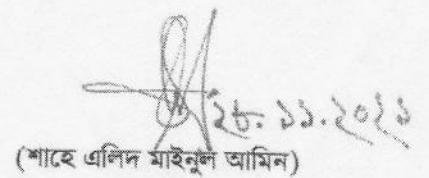 ২৮.১১.২০২১
(শাহে এলিদ মাইনুল আমিন)